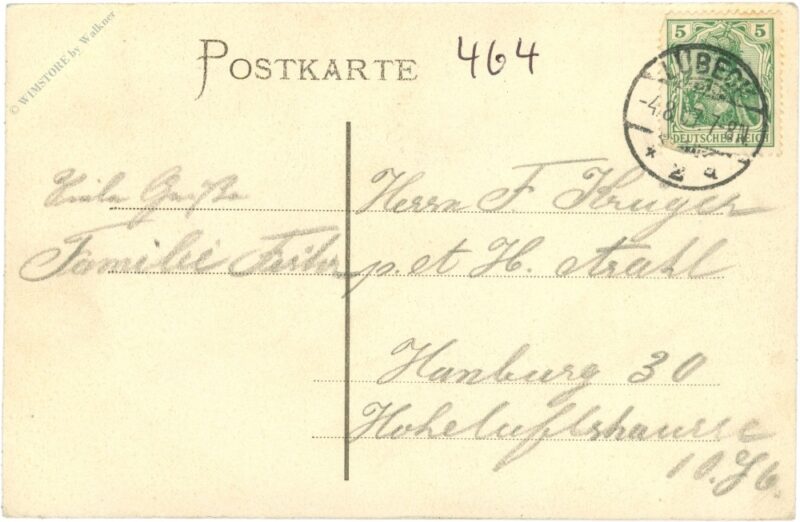 © WIMSTORE by Walkner
POSTKARTE
464
5 5
DEUTSCHES REICH
LÜBECK
-4.8.07.7-8N.
* 2 a
Viele Grüße
Familie
Herrn F. Krüger
p. et H. Strahl
Hamburg 30
Hoheluftchaussee
10.